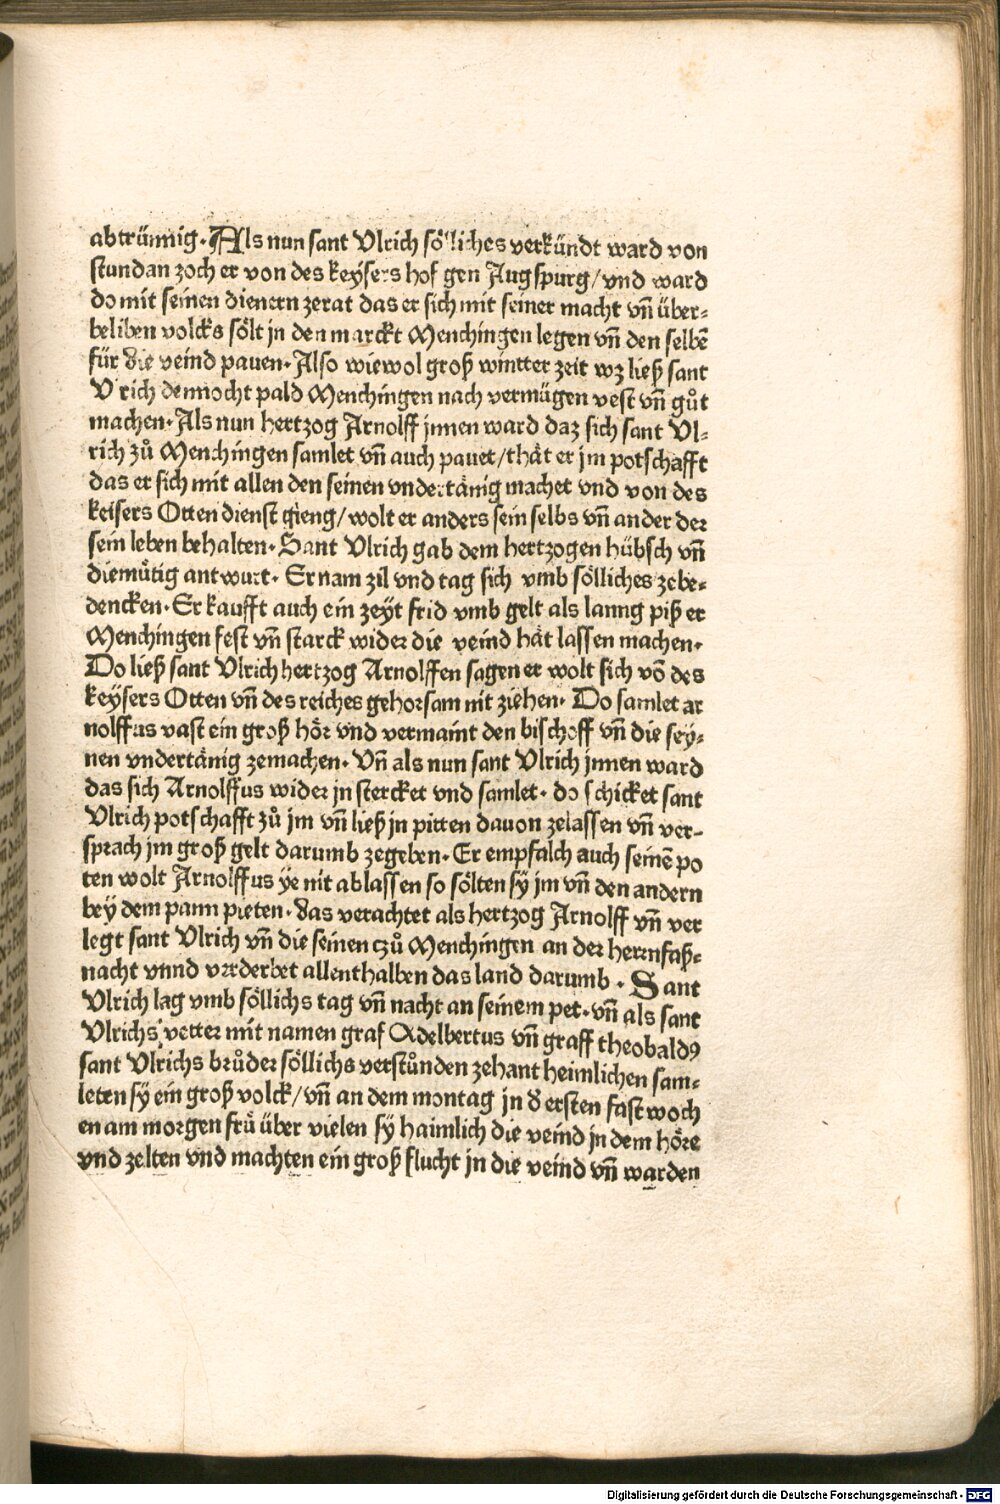 abtrünnig. Als nun sant Ulrich sölliches verkündt ward von
stundan zoch er von des keysers hof gen Augspurg/vnd ward
do mit seinen dienern zerat das er sich mit seiner macht vñ über-
beliben volcks sölt jn den marckt Menchingen legen vñ den selbē
für die veind pauen. Also wiewol groß wintter zeit wz ließ sant
Vlrich dennocht pald Menchingen nach vermügen vest vñ gůt
machen. Als nun hertzog Arnolff jnnen ward daz sich sant Vl-
rich zů Menchingen samlet vñ auch pauet/thät er jm potschafft
das er sich mit allen den seinen vndertänig machet vnd von des
keisers Otten dienst gieng/wolt er anders sein selbs vñ ander der
sein leben behalten. Sant Vlrich gab dem hertzogen hübsch vñ
diemütig antwurt. Er nam zil vnd tag sich vmb sölliches zebe-
dencken. Er kaufft auch ein zeyt frid vmb gelt als lanng piß er
Menchingen fest vñ starck wider die veind hät lassen machen.
Do ließ sant Vlrich hertzog Arnolffen sagen er wolt sich vō des
keysers Otten vñ des reiches gehorsam nit ziehen. Do samlet ar
nolffus vast ein groß hör vnd vermaint den bischoff vñ die sey-
nen vndertänig zemachen. Vñ als nun sant Vlrich jnnen ward
das sich Arnolffus wider jn stercket vnd samlet. do schicket sant
Vlrich potschafft zů jm vñ ließ jn pitten dauon zelassen vñ ver-
sprach jm groß gelt darumb zegeben. Er empfalch auch seinē po
ten wolt Arnolffus ye nit ablassen so sölten sy jm vñ den andern
bey dem pann pieten. das verachtet als hertzog Arnolff vñ ver
legt sant Vlrich vñ die seinen czů Menchingen an der herrnfaß-
nacht vnnd verderbet allenthalben das land darumb. Sant
Vlrich lag vmb söllichs tag vñ nacht an seinem pet. vñ als sant
Vlrichs vetter mit namen graf Adelbertus vñ graff theobaldꝰ
sant Vlrichs brůder söllichs verstůnden zehant heimlichen sam-
leten sy ein groß volck/vñ an dem montag jn d ersten fastwoch
en am morgen frü über vielen sy haimlich die veind jn dem höre
vnd zelten vnd machten ein groß flucht jn die veind vñ warden
Digitalisierung gefördert durch die Deutsche Forschungsgemeinschaft - DFG